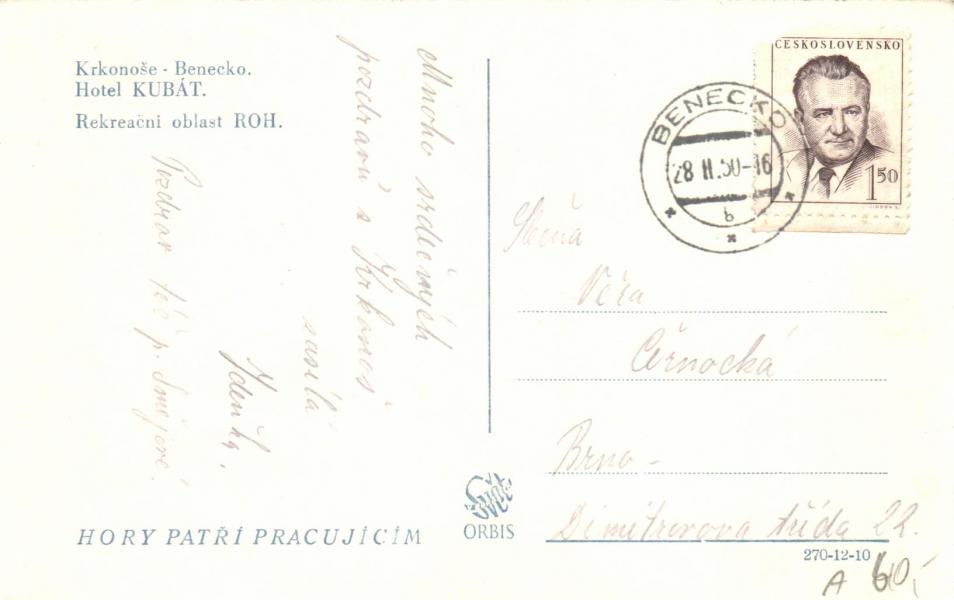 Krkonoše - Benecko.
Hotel KUBÁT.
Rekreační oblast ROH.
Mnoho srdečných
pozdravů z Krkonoš
zasílá
Zdenka.
Pozdrav též p. 
HORY PATŘÍ PRACUJÍCÍM
ORBIS
ČESKOSLOVENSKO
1 50
BENECKO
28 II.50-16
b
Slečna
Věra
Černocká
Brno -
Dimitrovova třída 22.
270-12-10
A 60,-